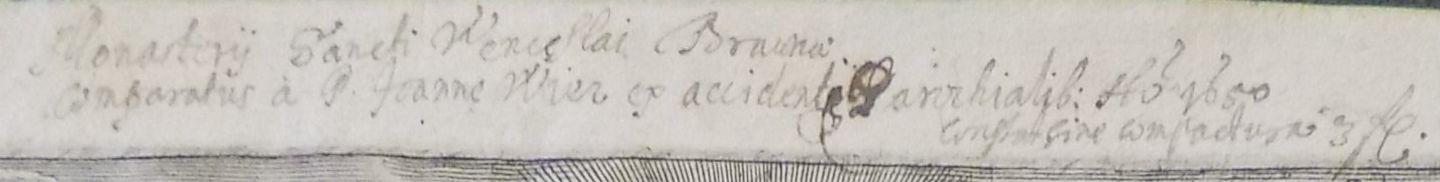 Monasterij Sancti Wenceslai Braunae
comparatus à P. Joanne Wier ex accidentijs Parochialib: Ao 1650
constat sine compactura 3 fl.